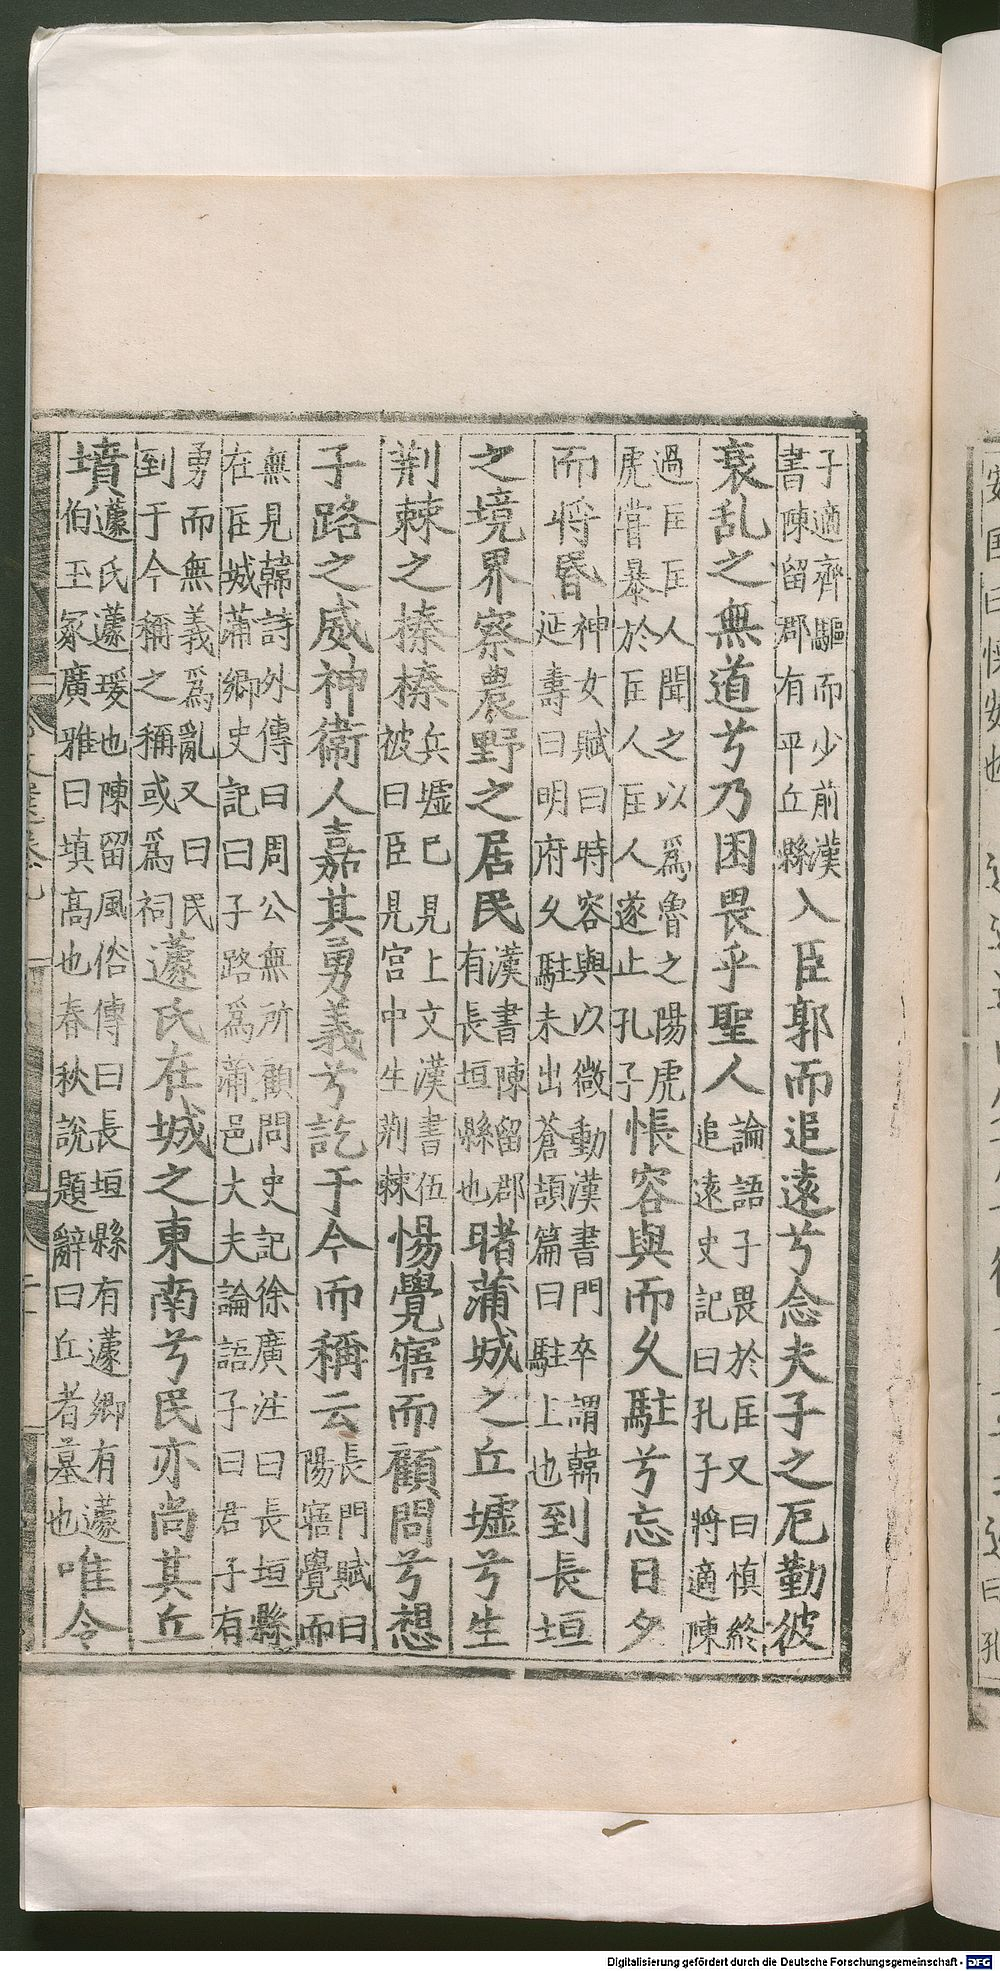 子適齊驅而少前漢書陳留郡有平丘縣入匡郭而追遠兮念夫子之厄勤彼
衰乱之無道兮乃困畏乎聖人論語子畏於匡又曰慎終追遠史記曰孔子將適陳
過匡匡人聞之以爲魯之陽虎虎嘗暴於匡人匡人遂止孔子悵容與而久駐兮忘日夕
而將昏神女賦曰時容與以微動漢書門卒謂韓延壽曰明府久駐未出蒼頡篇曰駐上也到長垣
之境界察農野之居民漢書陳留郡有長垣縣也睹蒲城之丘墟兮生
荆棘之榛榛兵墟已見上文漢書伍被曰臣見宫中生荆棘惕覺寤而顧問兮想
子路之威神衛人嘉其勇義兮訖于今而稱云長門賦曰陽寤覺而
無見韓詩外傳曰周公無所顧問史記徐廣注曰長垣縣在匡城蒲鄉史記曰子路爲蒲邑大夫論語子曰君子有
勇而無義爲亂又曰民到于今稱之稱或爲祠蘧氏在城之東南兮民亦尚其丘
墳蘧氏蘧瑗也陳留風俗傳曰長垣縣有蘧鄉有蘧伯玉冢廣雅曰墳高也春秋說題辭曰丘者墓也唯令
Digitalisierung gefördert durch die Deutsche Forschungsgemeinschaft - DFG